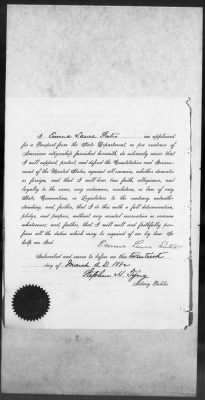 I Emma Laura an applicant
for a Passport from the State Department, as per evidence of
American citizenship furnished herewith, do solemnly swear that
I will support, protect, and defend the Constitution and Govern-
ment of the United States, against all enemies, whether domestic
or foreign, and that I will bear true faith, allegiance, and
loyalty to the same, any ordinance, resolution, or law of any
State, Convention, or Legislature to the contrary notwith-
standing; and further, that I do this with a full determination,
pledge, and purpose, without any mental reservation or evasion
whatsoever; and, further, that I will well and faithfully per-
form all the duties which may be required of me by law. So
help me God.
Emma
Subscribed and sworn to before me this twentieth
day of March A.D. 188
Stephen H. Tyng
Notary Public